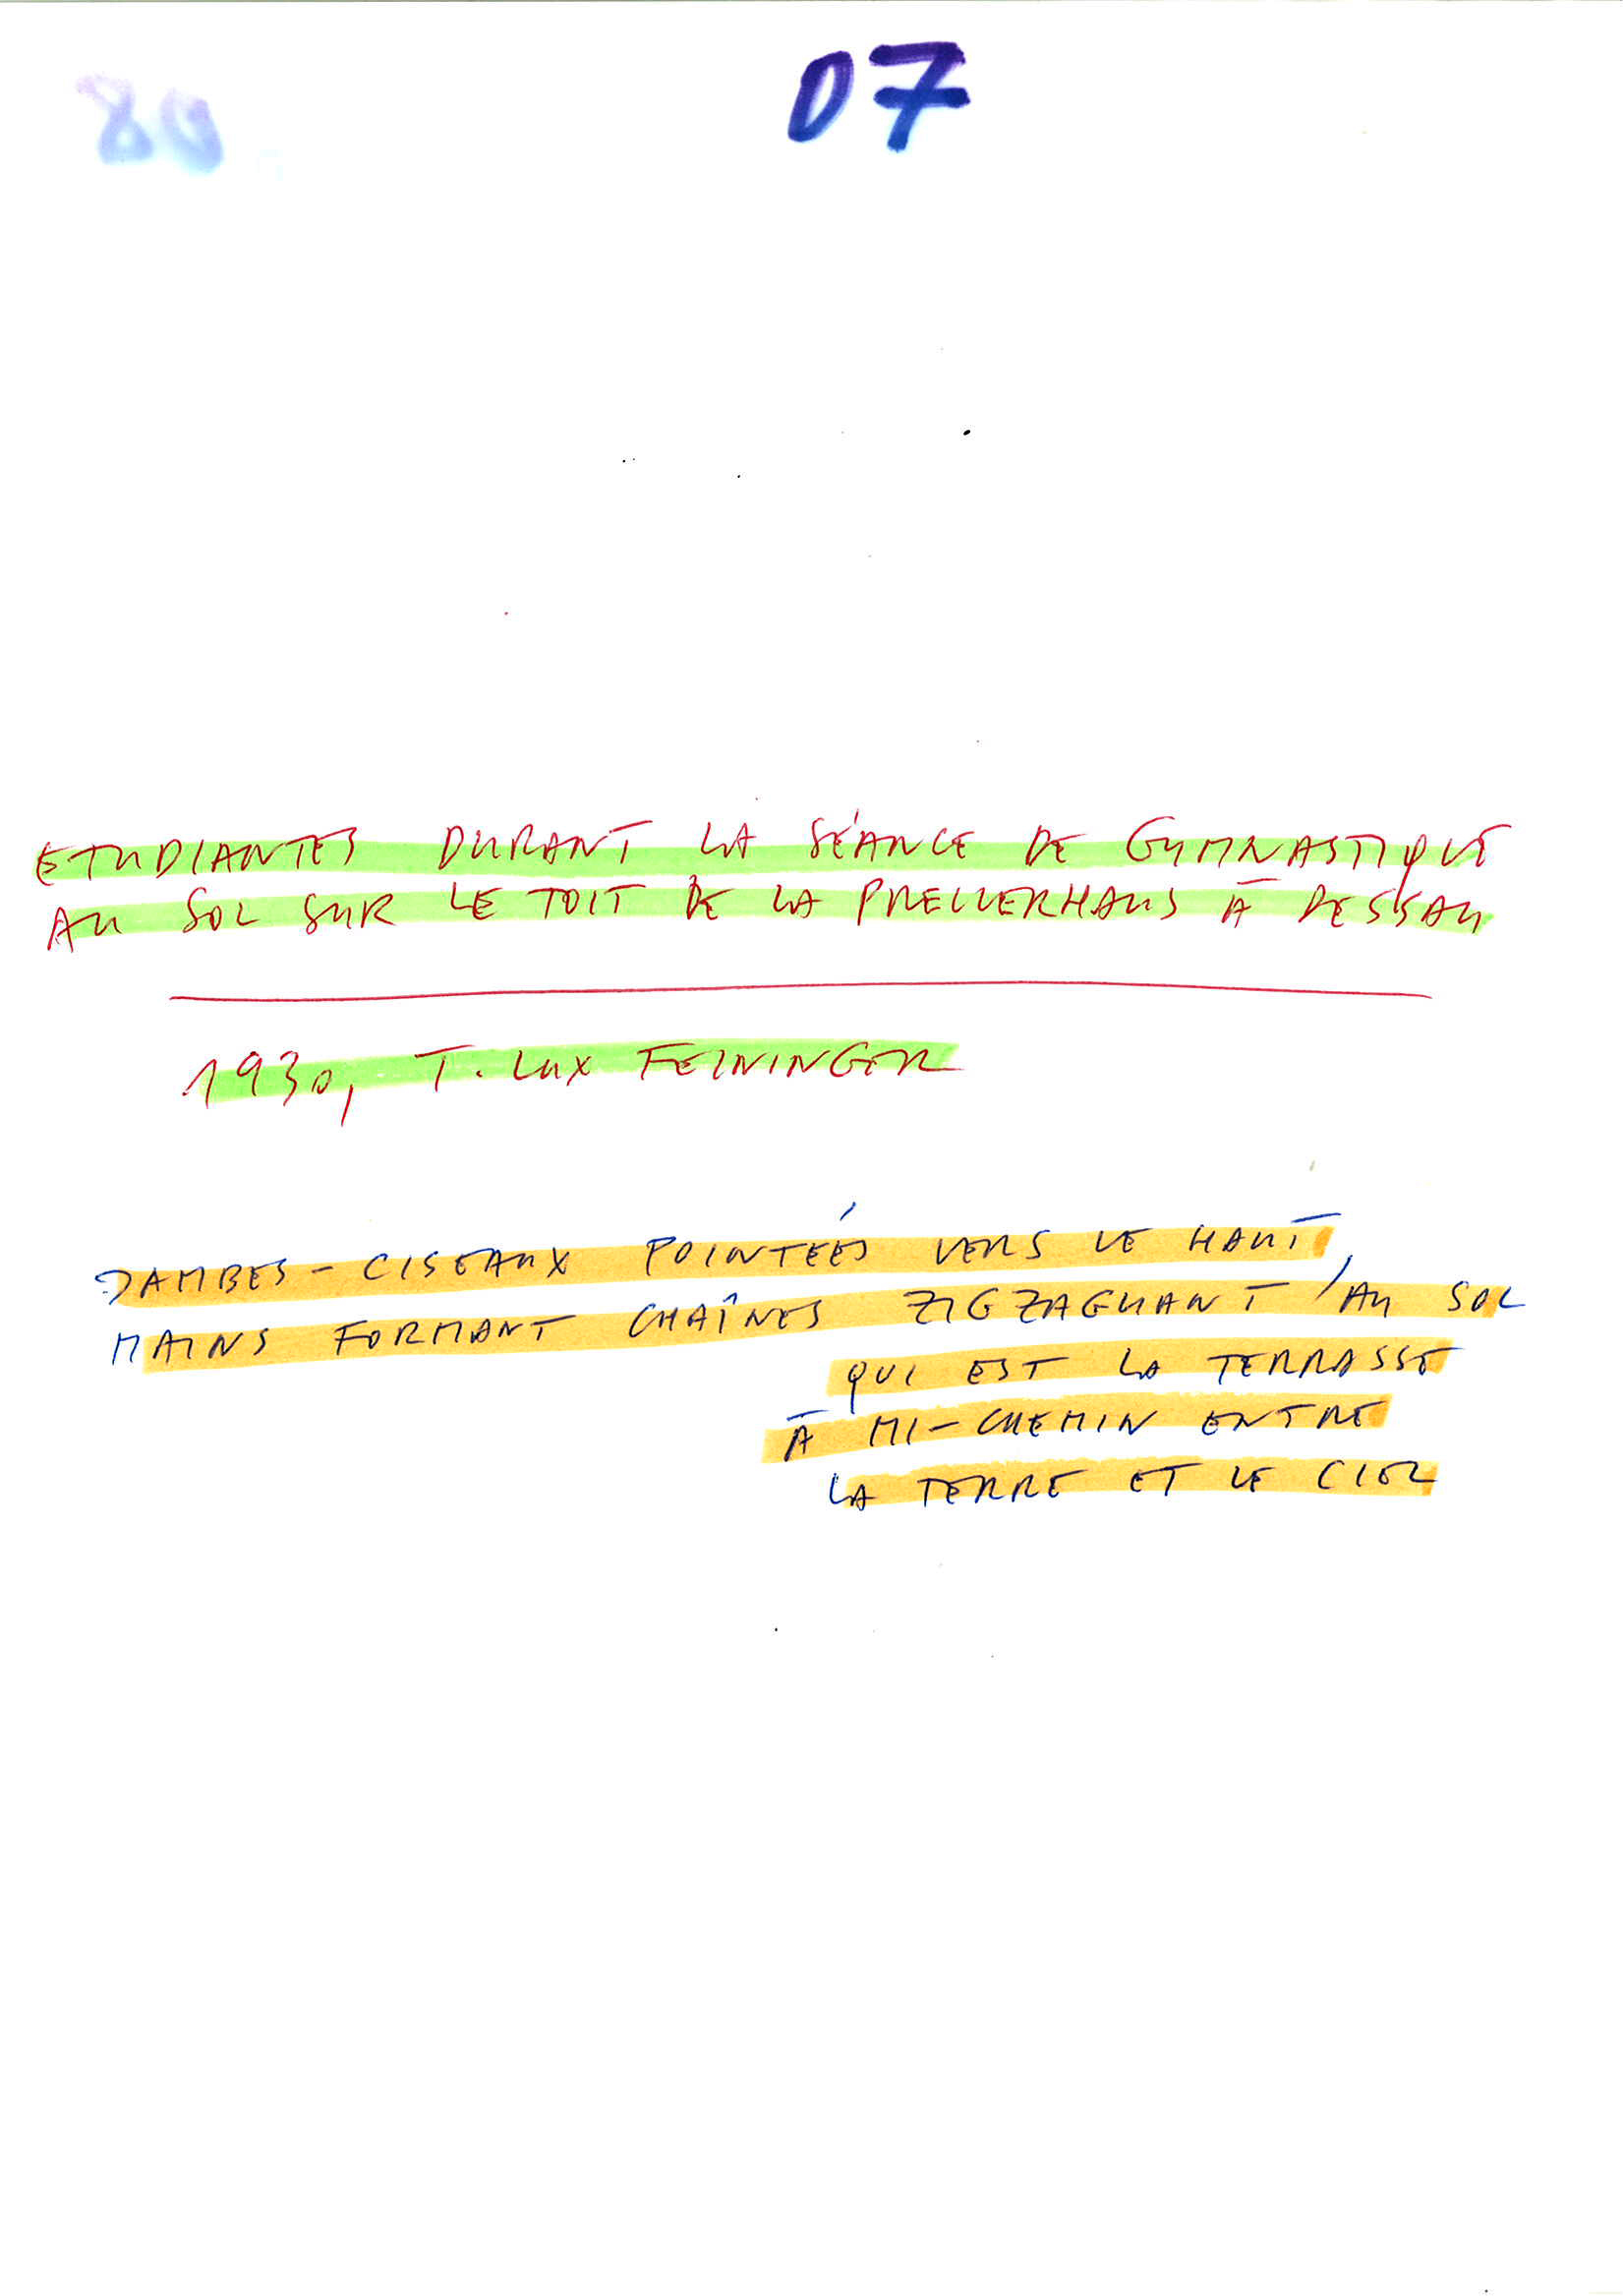 07
80
ETUDIANTES DURANT LA SÉANCE DE GYMNASTIQUE
AU SOL SUR LE TOIT DE LA PRELLERHAUS À DESSAU
1930, T. LUX FEININGER
JAMBES-CISEAUX POINTÉES VERS LE HAUT,
MAINS FORMANT CHAÎNES ZIGZAGUANT / AU SOL
QUI EST LA TERRASSE
À MI-CHEMIN ENTRE
LA TERRE ET LE CIEL